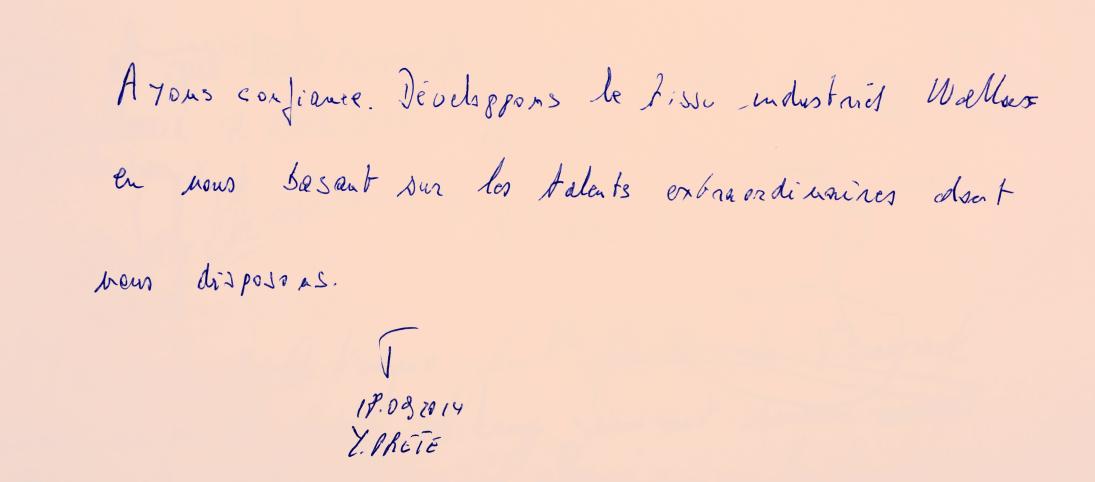 Ayons confiance. Développons le tissu industriel Wallon
en nous basant sur les talents extraordinaires dont
nous disposons.
18.09 2014
Y. PRETE